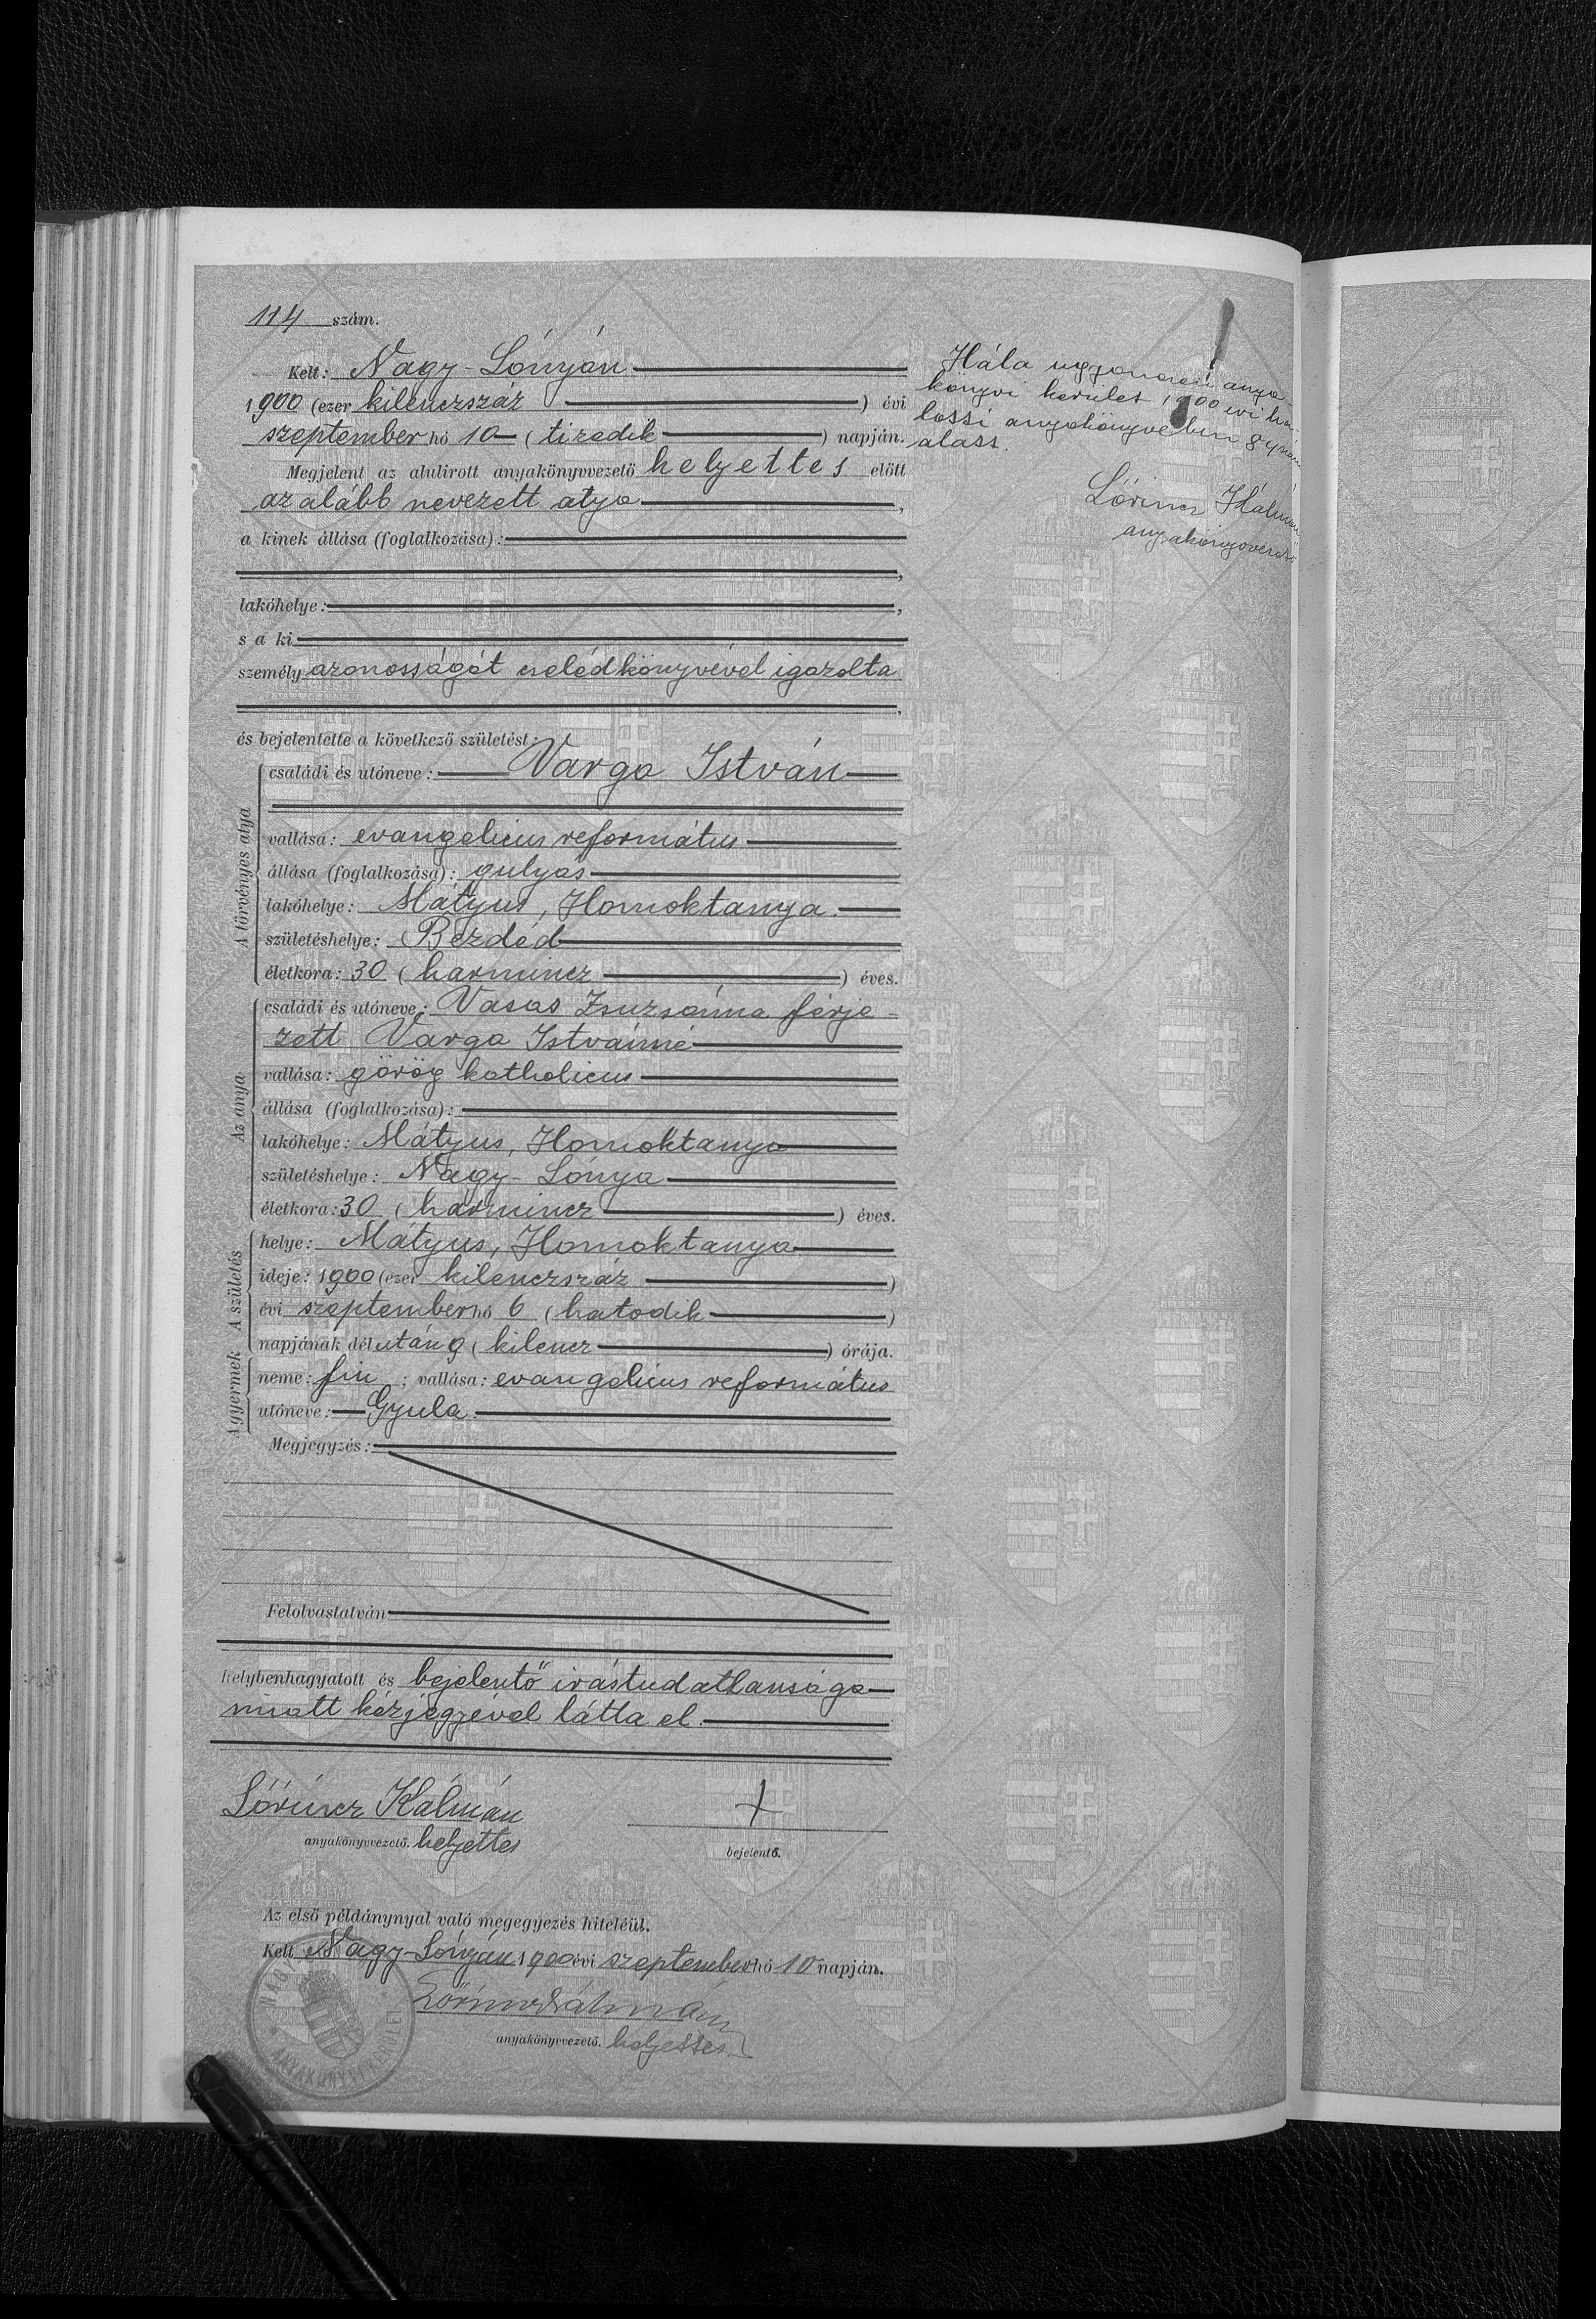 114 szám.
Kelt: Nagy-Lónyán
1900 (ezer kilenczszáz) évi
szeptember hó 10 (tizedik) napján.
Megjelent az alulirott anyakönyvvezető helyettes előtt
az alább nevezett atya,
a kinek állása (foglalkozása):
,
lakóhelye: ,
s a ki
személyazonosságát cselédkönyvével igazolta
,
és bejelentette a következő születést:
A törvényes atya
családi és utóneve: Varga István
vallása: evangelicus református
állása (foglalkozása): gulyás
lakóhelye: Mátyus, Homoktanya.
születéshelye: Bezdéd
életkora: 30 (harmincz) éves.
Az anya
családi és utóneve: Vasas Zsuzsánna férje-
zett Varga Istvánné
vallása: görög katholicus
állása (foglalkozása):
lakóhelye: Mátyus, Homoktanya
születéshelye: Nagy-Lónya
életkora: 30 (harmincz) éves.
A születés
helye: Mátyus, Homoktanya
ideje: 1900 (ezer kilenczszáz)
évi szeptember hó 6 (hatodik)
napjának délután 9 (kilencz) órája.
A gyermek
neme: fiu; vallása: evangelicus református
utóneve: Gyula.
Megjegyzés:
Felolvastatván
helybenhagyatott és bejelentő irástudatlansága
miatt kézjegyével látta el.
Lőrincz Kálmán
anyakönyvvezető. helyettes
+
bejelentő.
Az első példánynyal való megegyezés hiteléül.
Kelt Nagy-Lónyán 1900 évi szeptember hó 10 napján.
Lőrincz Kálmán
anyakönyvvezető. helyettes
NAGY ANYAKÖNYVI KERÜLET
Hála ugyanezen anya-
könyvi kerület 1900 évi ha-
lossi anyakönyvében 84 szám
alatt.
Lőrincz Kálmán
anyakönyvvezető